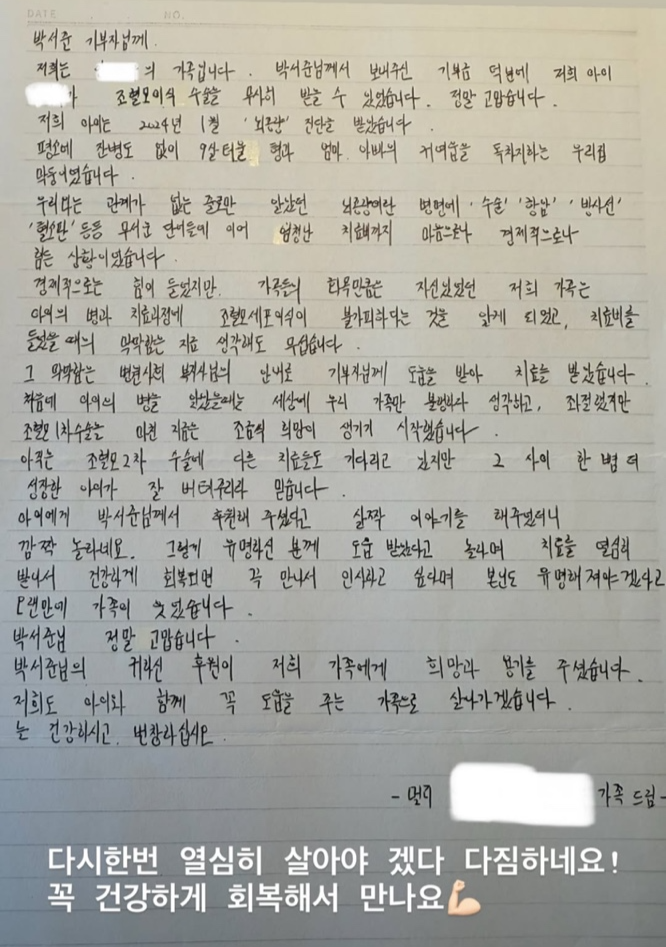 DATE NO.
박서준 기부자님께.
저희는 의 가족입니다. 박서준님께서 보내주신 기부금 덕분에 저희 아이
가 조혈모이식 수술을 무사히 받을 수 있었습니다. 정말 고맙습니다.
저희 아이는 2024년 1월 '뇌종양' 진단을 받았습니다.
평소에 잔병도 없이 9살 터울 형과 엄마 아빠의 귀여움을 독차지하는 우리집
막둥이였습니다.
우리와는 관계가 없는 줄로만 알았던 뇌종양이란 병명에 '수술' '항암' '방사선'
'혈소판' 등등 무서운 단어들에 이어 엄청난 치료비까지 마음으로나 경제적으로나
힘든 상황이었습니다.
경제적으로는 힘이 들었지만, 가족들의 화목만큼은 자신있었던 저희 가족은
아이의 병과 치료과정에 조혈모세포이식이 불가피하다는 것을 알게 되었고, 치료비를
들었을 때의 막막함은 지금 생각해도 무섭습니다.
그 막막함은 병원사회 복지사님의 안내로 기부자님께 도움을 받아 치료를 받았습니다.
처음에 아이의 병을 알았을때는 세상에 우리 가족만 불행하다 생각하고, 좌절했지만
조혈모1차수술을 마친 지금은 조금씩 희망이 생기기 시작했습니다.
아직은 조혈모2차 수술에 다른 치료들도 기다리고 있지만 그 사이 한 뼘 더
성장한 아이가 잘 버텨주리라 믿습니다.
아이에게 박서준님께서 후원해 주셨다고 살짝 이야기를 해주었더니
깜짝 놀라네요. 그렇게 유명하신 분께 도움 받았다고 놀라며 치료를 열심히
받아서 건강하게 회복되면 꼭 만나서 인사하고 싶다며 본인도 유명해져야겠다고
오랜만에 가족이 웃었습니다.
박서준님 정말 고맙습니다.
박서준님의 귀하신 후원이 저희 가족에게 희망과 용기를 주셨습니다.
저희도 아이와 함께 꼭 도움을 주는 가족으로 살아가겠습니다.
늘 건강하시고, 번창하십시오.
- 멀리 가족 드림-
다시한번 열심히 살아야 겠다 다짐하네요!
꼭 건강하게 회복해서 만나요💪🏻